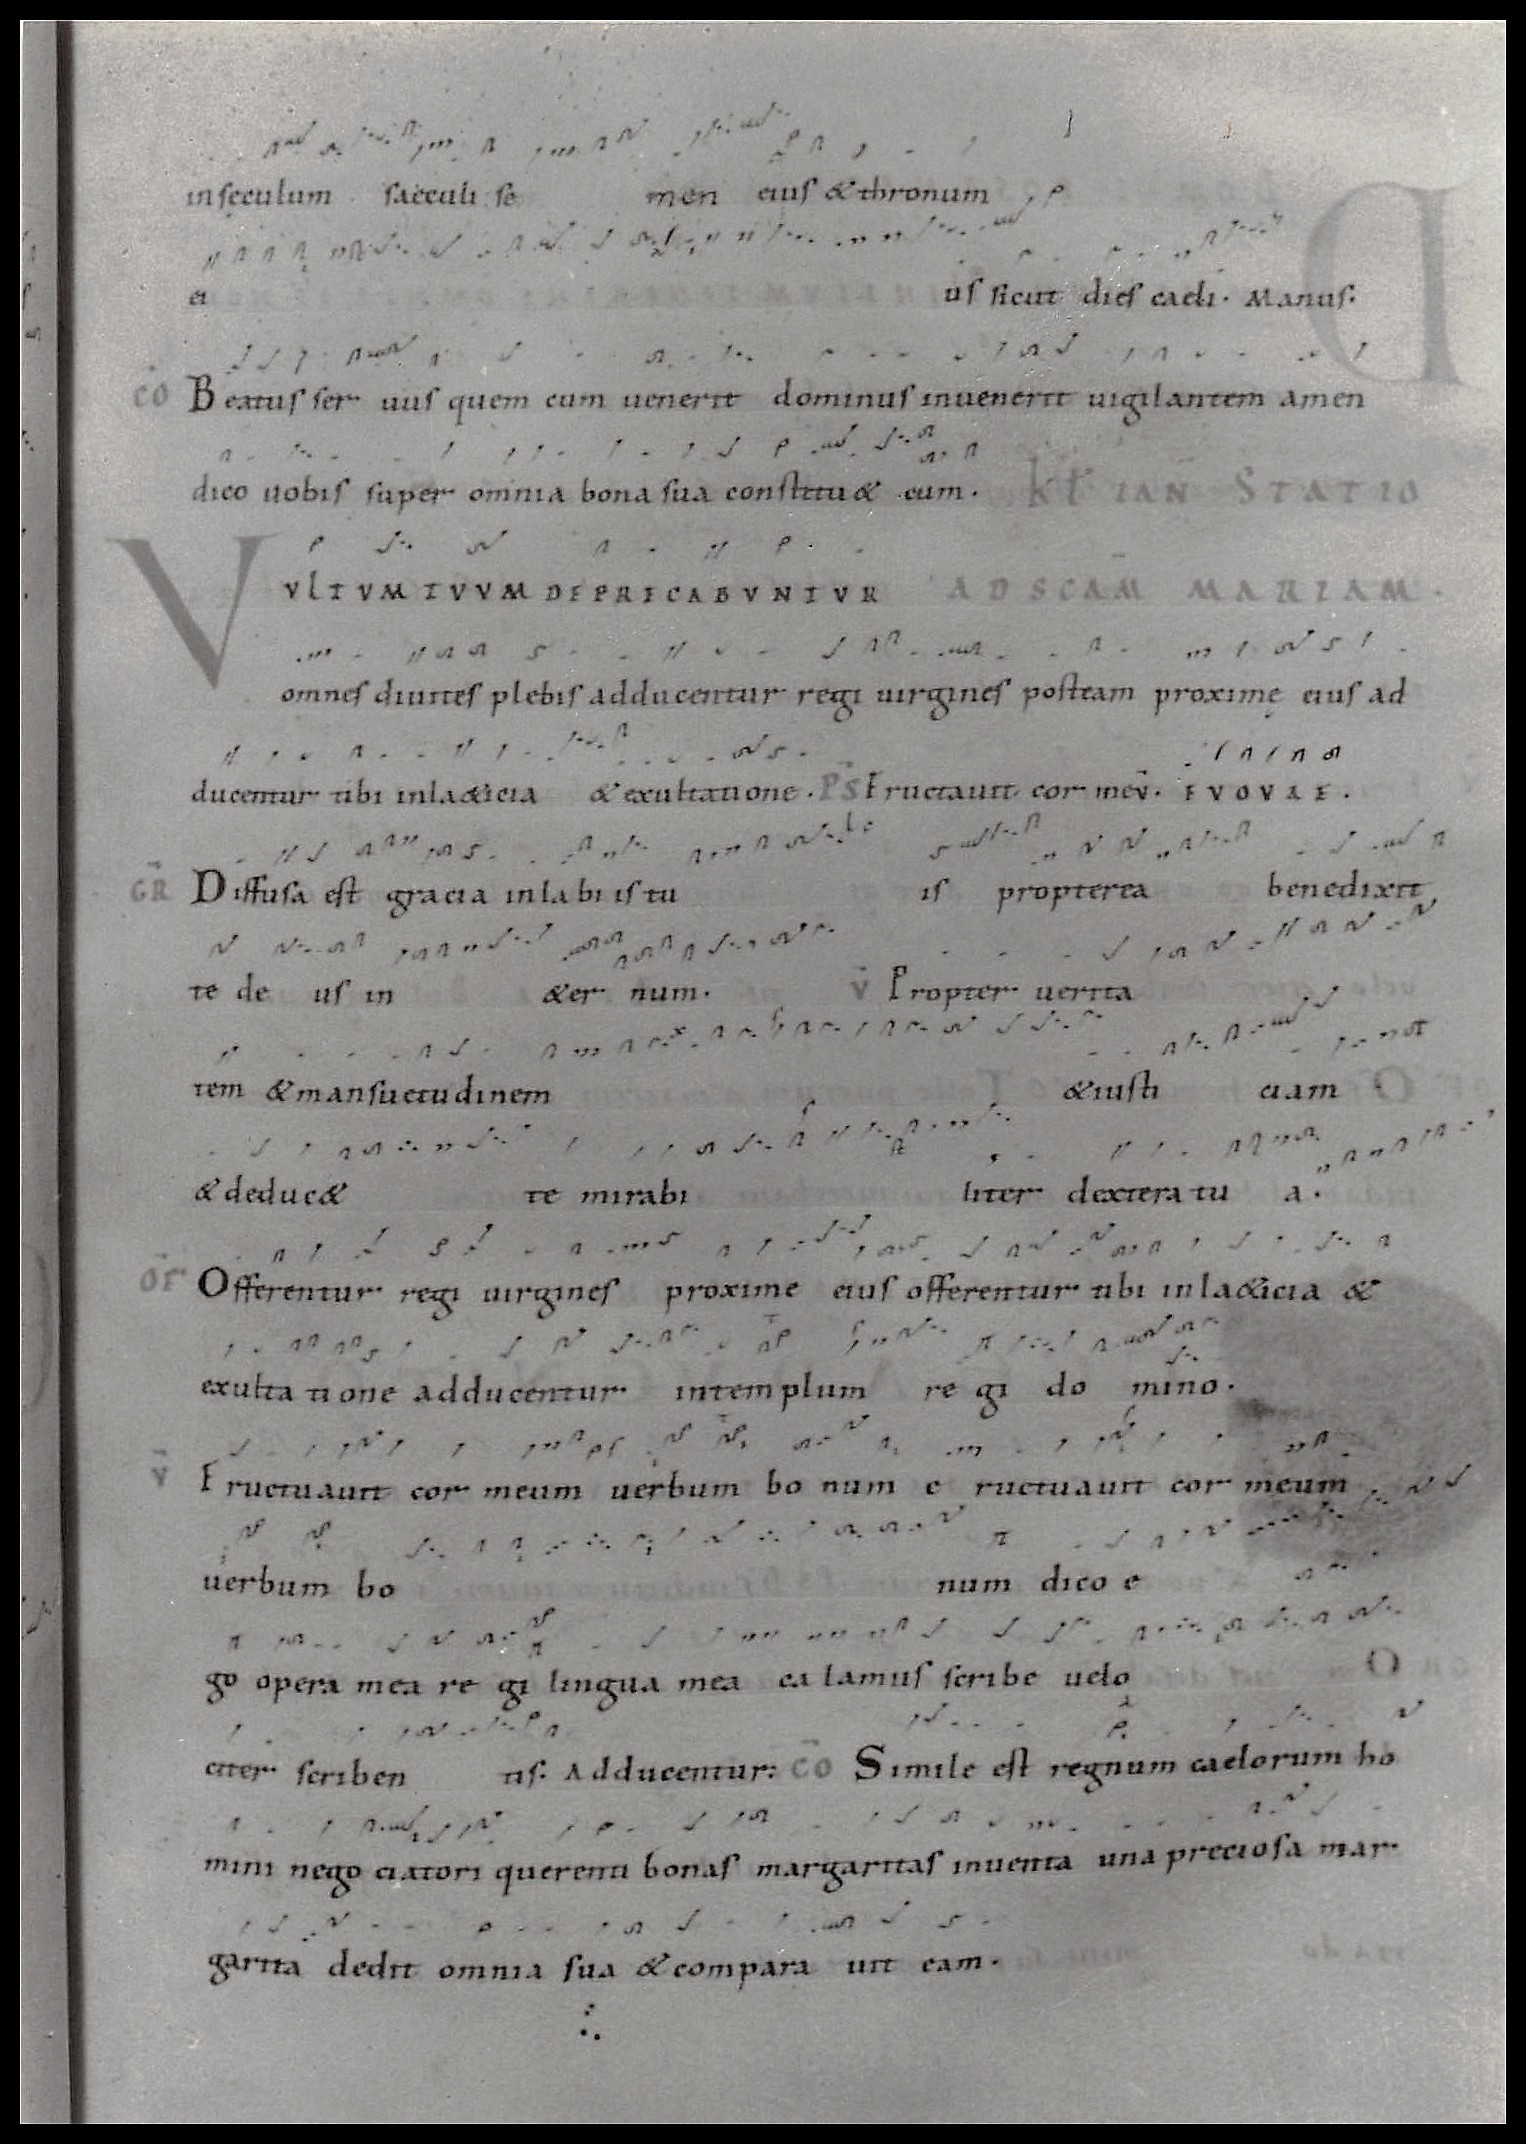 in seculum saeculi se men eius & thronum
ei us sicut dies caeli. Manus:
CŌ Beatus ser uus quem cum uenerit dominus inuenerit uigilantem amen
dico uobis super omnia bona sua constitu& eum. Kł IAN̄ STATIO
VULTUM TUUM DEPRECABUNTUR AD SCAM̄ MARIAM.
omnes diuites plebis adducentur regi uirgines posteam proximę eius ad
ducentur tibi in la&icia & exultatione. PS̄ Eructauit cor meū. EUOUAE.
GR̄ Diffusa est gracia in labi is tu is propterea benedixit
te de us in &er num. V̄ Propter uerita
tem & mansuetudinem & iusti ciam
& deduc& te mirabi liter dextera tu a.
OF̄ Offerentur regi uirgines proxime eius offerentur tibi in la&icia &
exulta tione adducentur in templum re gi do mino.
V̄ Eructuauit cor meum uerbum bo num e ructuauit cor meum
uerbum bo num dico e
go opera mea re gi lingua mea ca lamus scribe uelo
citer scriben tis: Adducentur: CŌ Simile est regnum caelorum ho
mini nego ciatori querenti bonas margaritas inuenta una preciosa mar
garita dedit omnia sua & compara uit eam.